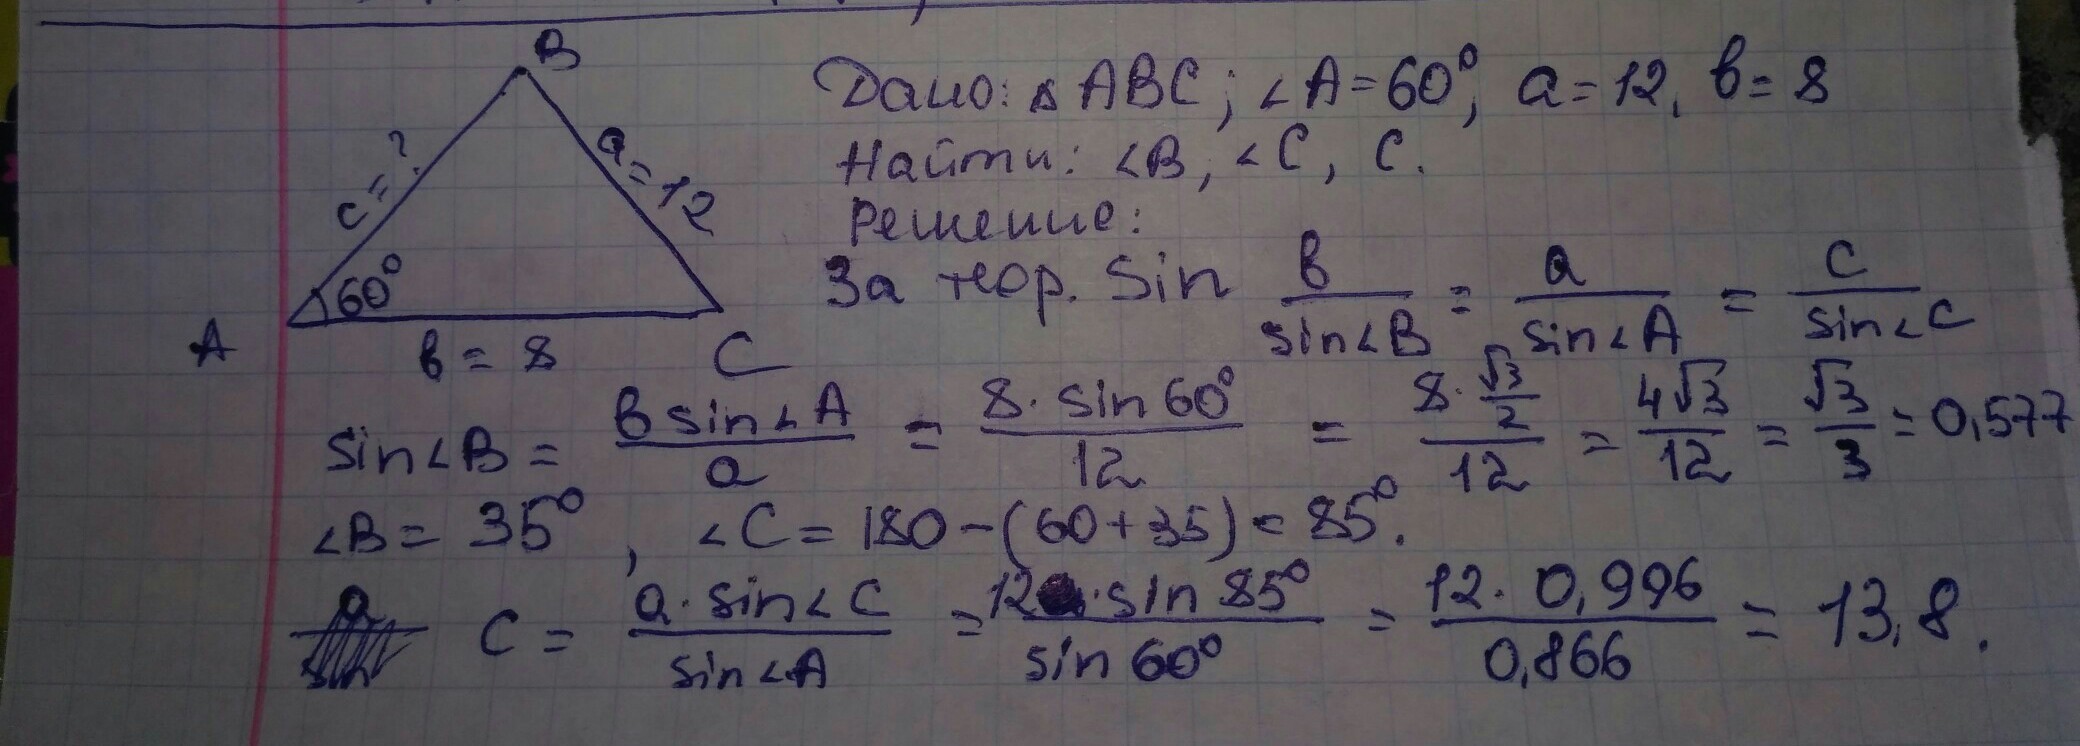 B
c = ?
a = 12
60°
A
в = 8
C
Дано: △ ABC; ∠A=60°, a=12, в=8
Найти: ∠B, ∠C, C.
Решение:
За теор. Sin в/sin∠B = a/sin∠A = c/sin∠C
Sin∠B = в sin∠A/a = 8·sin60°/12 = 8·√3/2/12 = 4√3/12 = √3/3 = 0,577
∠B = 35°, ∠C = 180-(60+35) = 85°.
C = a·sin∠C/sin∠A = 12·sin 85°/sin60° = 12·0,996/0,866 = 13,8.